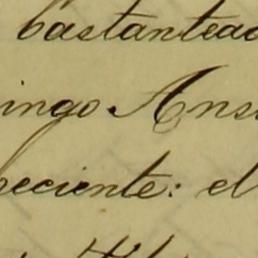 bastantead
ingo Ans
peciente: el